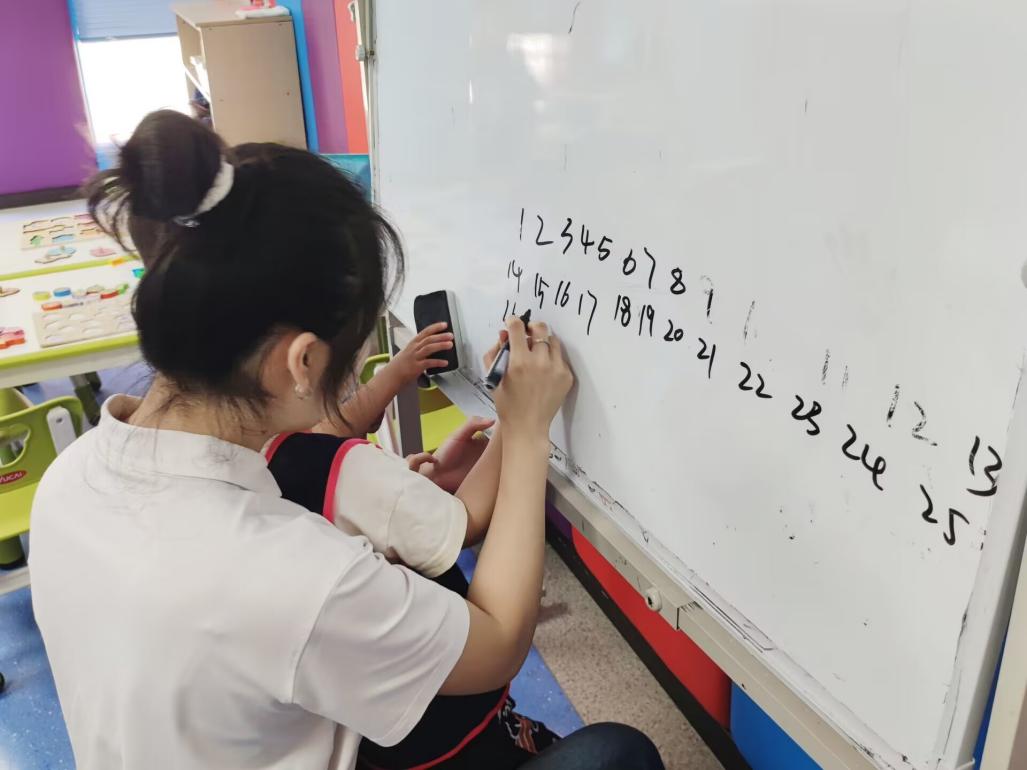 1 2 3 4 5 6 7 8 9 1 11 12 13
14 15 16 17 18 19 20 21 22 23 24 25
YUCAI